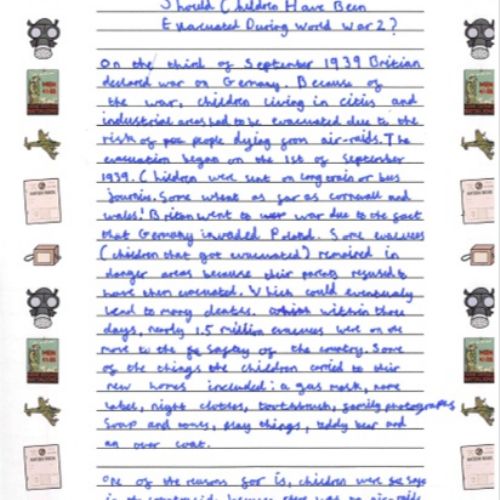 Should Children Have Been
Evacuated During World War 2?
On the third of September 1939 Britian
declared war on Germany. Because of
the war, children living in cities and
industrial areas had to be evacuated due to the
risk of people dying from air-raids. The
evacuation began on the 1st of September
1939. Children were sent on long train or bus
journies. Some whent as far as cornwall and
wales! Britan went to war due to the fact
that Germany invaded Poland. Some evacuees
(children that got evacuated) remained in
danger areas because their parents refused to
have them evacuated. Which could eventualy
lead to many deaths. within three
days, nearly 1.5 million evacuees were on the
move to the safty of the country. Some
of the things the children carried to their
new homes included: a gas mask, name
label, night clothes, toothbrush, family photographs
Soap and towel, play things, teddy bear and
an over coat.
One of the reasons for is, children were safe
in the because there was no air-raids